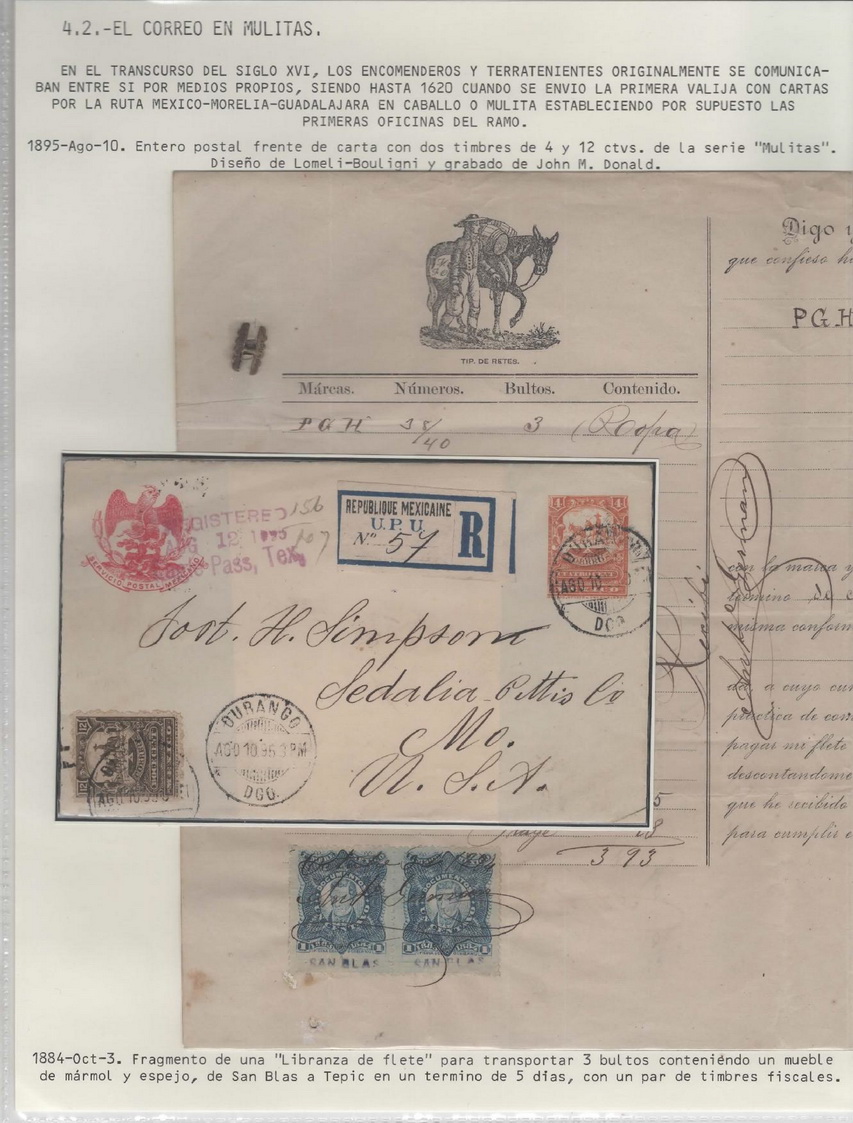 4.2.-EL CORREO EN MULITAS.
EN EL TRANSCURSO DEL SIGLO XVI, LOS ENCOMENDEROS Y TERRATENIENTES ORIGINALMENTE SE COMUNICA-
BAN ENTRE SI POR MEDIOS PROPIOS, SIENDO HASTA 1620 CUANDO SE ENVIO LA PRIMERA VALIJA CON CARTAS
POR LA RUTA MEXICO-MORELIA-GUADALAJARA EN CABALLO O MULITA ESTABLECIENDO POR SUPUESTO LAS
PRIMERAS OFICINAS DEL RAMO.
1895-Ago-10. Entero postal frente de carta con dos timbres de 4 y 12 ctvs. de la serie "Mulitas".
Diseño de Lomeli-Bouligni y grabado de John M. Donald.
TIP. DE RETES.
Márcas. Números. Bultos. Contenido.
P G H 38/40 3 (Ropa)
Digo y
que confieso h
P G H
SERVICIO POSTAL MEXICANO
GISTERED
12 1895
Pass, Tex.
156
107
REPUBLIQUE MEXICAINE
U.P.U.
Nº 57
R
4
AGO 10
DGO.
Post. H. Simpson
Sedalia Pettis Co
Mo.
U. S. A.
12
DURANGO
AGO 10 95 3 PM
DGO.
AGO 10
Recibi
con la marca y
termino de
misma conform
da, a cuyo cum
práctica de com
pagar mi flete
descontandome
que he recibido
para cumplir
5
18
3 93
DOCUMENTOS
DOCUMENTOS
SAN BLAS
SAN BLAS
1884-Oct-3. Fragmento de una "Libranza de flete" para transportar 3 bultos conteniéndo un mueble
de mármol y espejo, de San Blas a Tepic en un termino de 5 dias, con un par de timbres fiscales.